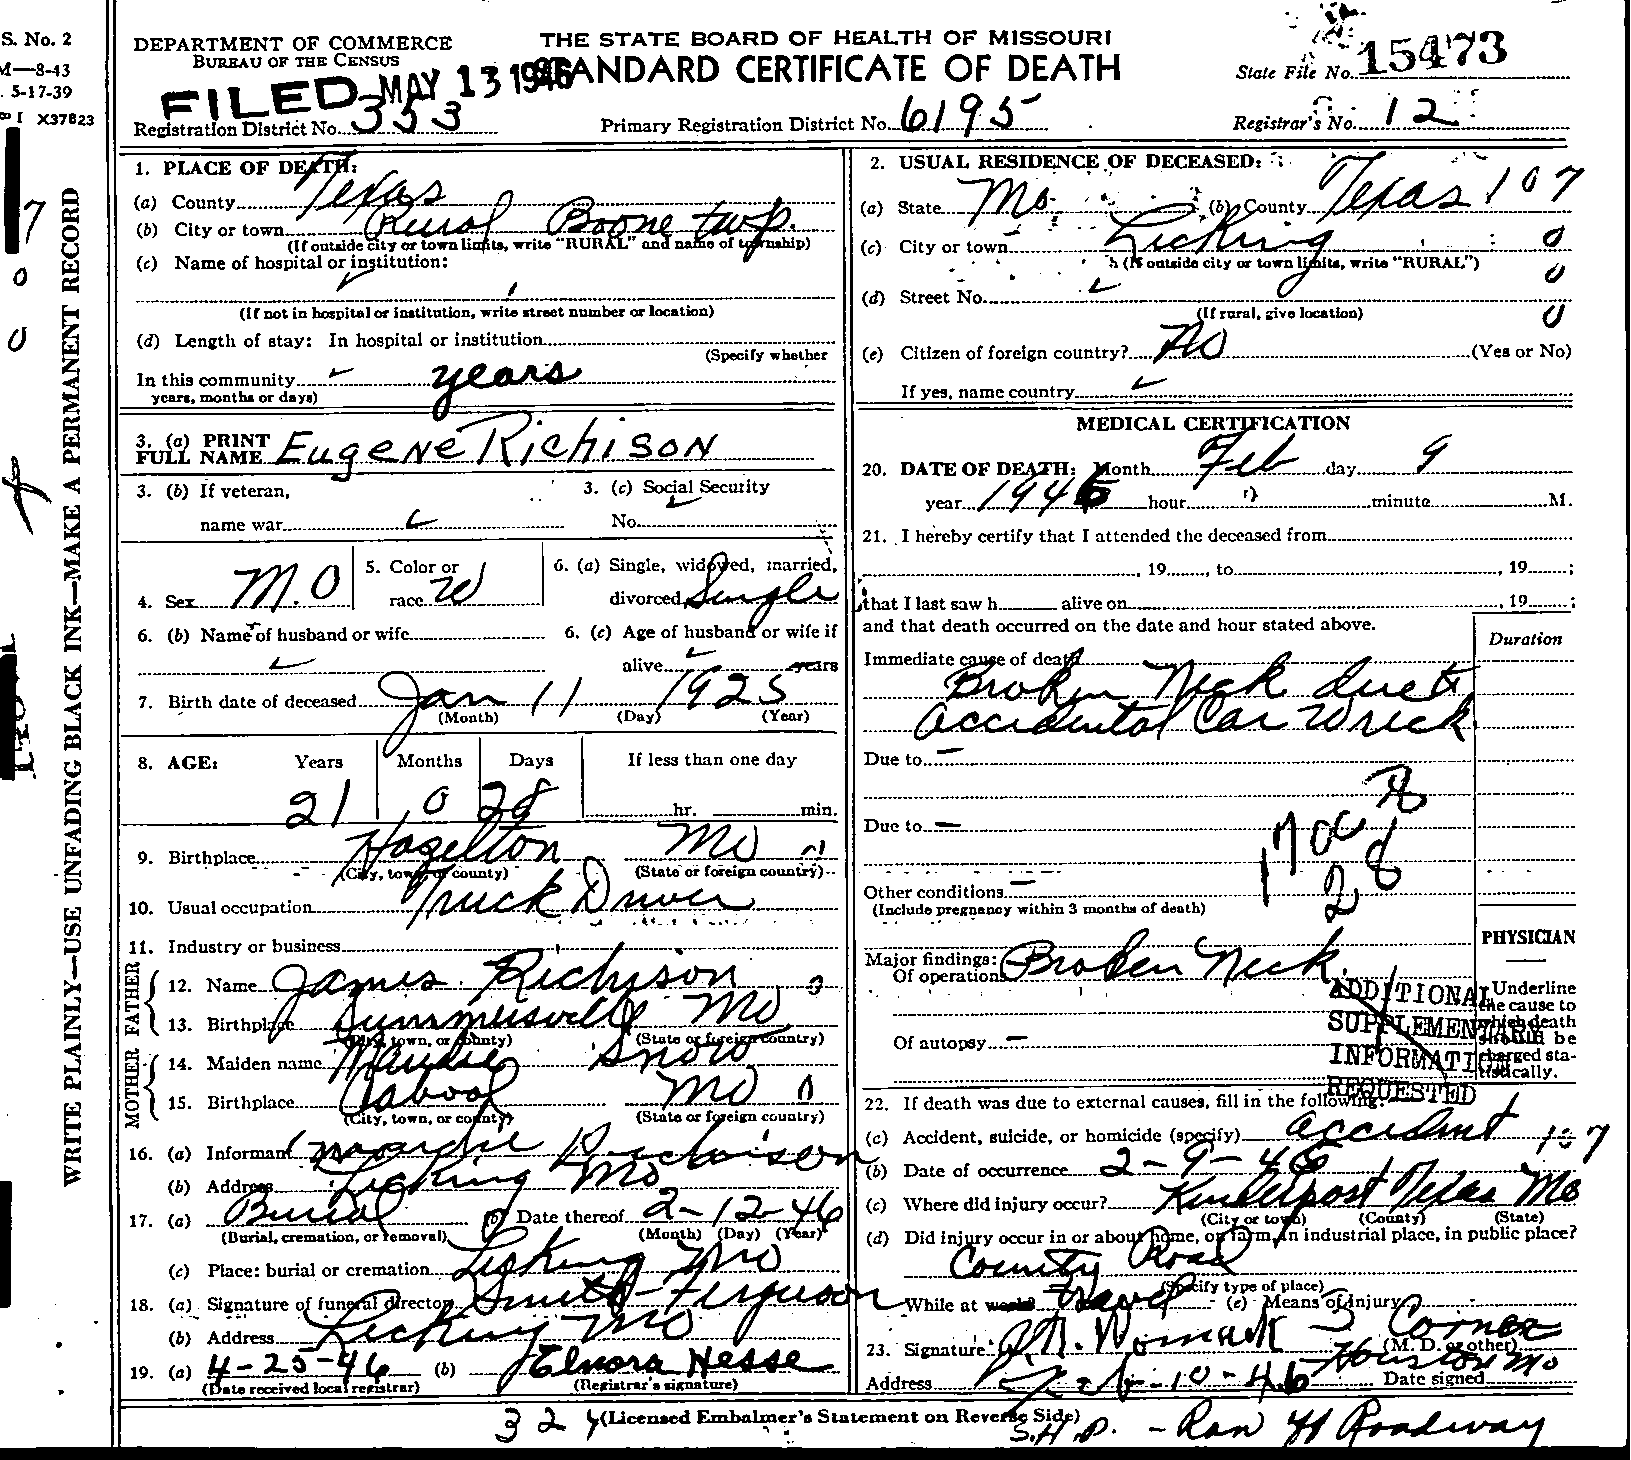 S. No. 2
M—8-43
5-17-39
I X37823
WRITE PLAINLY—USE UNFADING BLACK INK—MAKE A PERMANENT RECORD
DEPARTMENT OF COMMERCE
BUREAU OF THE CENSUS
THE STATE BOARD OF HEALTH OF MISSOURI
STANDARD CERTIFICATE OF DEATH
FILED MAY 13 1946
State File No. 15473
Registration District No. 353
Primary Registration District No. 6195
Registrar's No. 12
1. PLACE OF DEATH:
(a) County Texas
(b) City or town Rural Boone twp.
(If outside city or town limits, write "RURAL" and name of township)
(c) Name of hospital or institution:
(If not in hospital or institution, write street number or location)
(d) Length of stay: In hospital or institution
(Specify whether
In this community years
years, months or days)
2. USUAL RESIDENCE OF DECEASED:
(a) State Mo. (b) County Texas 107
(c) City or town Licking 0
(If outside city or town limits, write "RURAL")
(d) Street No. 0
(If rural, give location) 0
(e) Citizen of foreign country? No (Yes or No)
If yes, name country
3. (a) PRINT FULL NAME Eugene Richison
3. (b) If veteran, name war
3. (c) Social Security No.
4. Sex M.O
5. Color or race W
6. (a) Single, widowed, married, divorced Single
6. (b) Name of husband or wife
6. (c) Age of husband or wife if alive years
7. Birth date of deceased Jan 11 1925
(Month) (Day) (Year)
8. AGE: Years Months Days If less than one day
21 0 28 hr. min.
9. Birthplace Hazelton Mo
(City, town, or county) (State or foreign country)
10. Usual occupation Truck Driver
11. Industry or business
FATHER
12. Name James Richison 0
13. Birthplace Summersville Mo
(City, town, or county) (State or foreign country)
MOTHER
14. Maiden name Maudie Snow
15. Birthplace Cabool Mo 0
(City, town, or county) (State or foreign country)
16. (a) Informant Richison
(b) Address Licking Mo
17. (a) Burial (b) Date thereof 2-12-46
(Burial, cremation, or removal) (Month) (Day) (Year)
(c) Place: burial or cremation Licking Mo
18. (a) Signature of funeral director Smith-Ferguson
(b) Address Licking Mo
19. (a) 4-25-46 (b) Elnora Hesse
(Date received local registrar) (Registrar's signature)
MEDICAL CERTIFICATION
20. DATE OF DEATH: Month Feb day 9
year 1946 hour minute M.
21. I hereby certify that I attended the deceased from
, 19 , to , 19 ;
that I last saw h alive on , 19 ;
and that death occurred on the date and hour stated above.
Duration
Immediate cause of death
Broken Neck due to
accidental Car Wreck
Due to —
Due to —
170c
28
Other conditions —
(Include pregnancy within 3 months of death)
PHYSICIAN
Major findings:
Of operations Broken Neck.
Of autopsy —
Underline the cause to which death should be charged statistically.
ADDITIONAL
SUPPLEMENTARY
INFORMATION
REQUESTED
22. If death was due to external causes, fill in the following:
(a) Accident, suicide, or homicide (specify) accident 107
(b) Date of occurrence 2-9-46
(c) Where did injury occur? Kinderpost Texas Mo
(City or town) (County) (State)
(d) Did injury occur in or about home, on farm, in industrial place, in public place?
County Road
(Specify type of place)
While at work? (e) Means of injury
23. Signature Womack Corner
(M. D. or other)
Address Feb-10-46 Houston Mo Date signed
324 (Licensed Embalmer's Statement on Reverse Side)
S.H.P. - Ran off Roadway